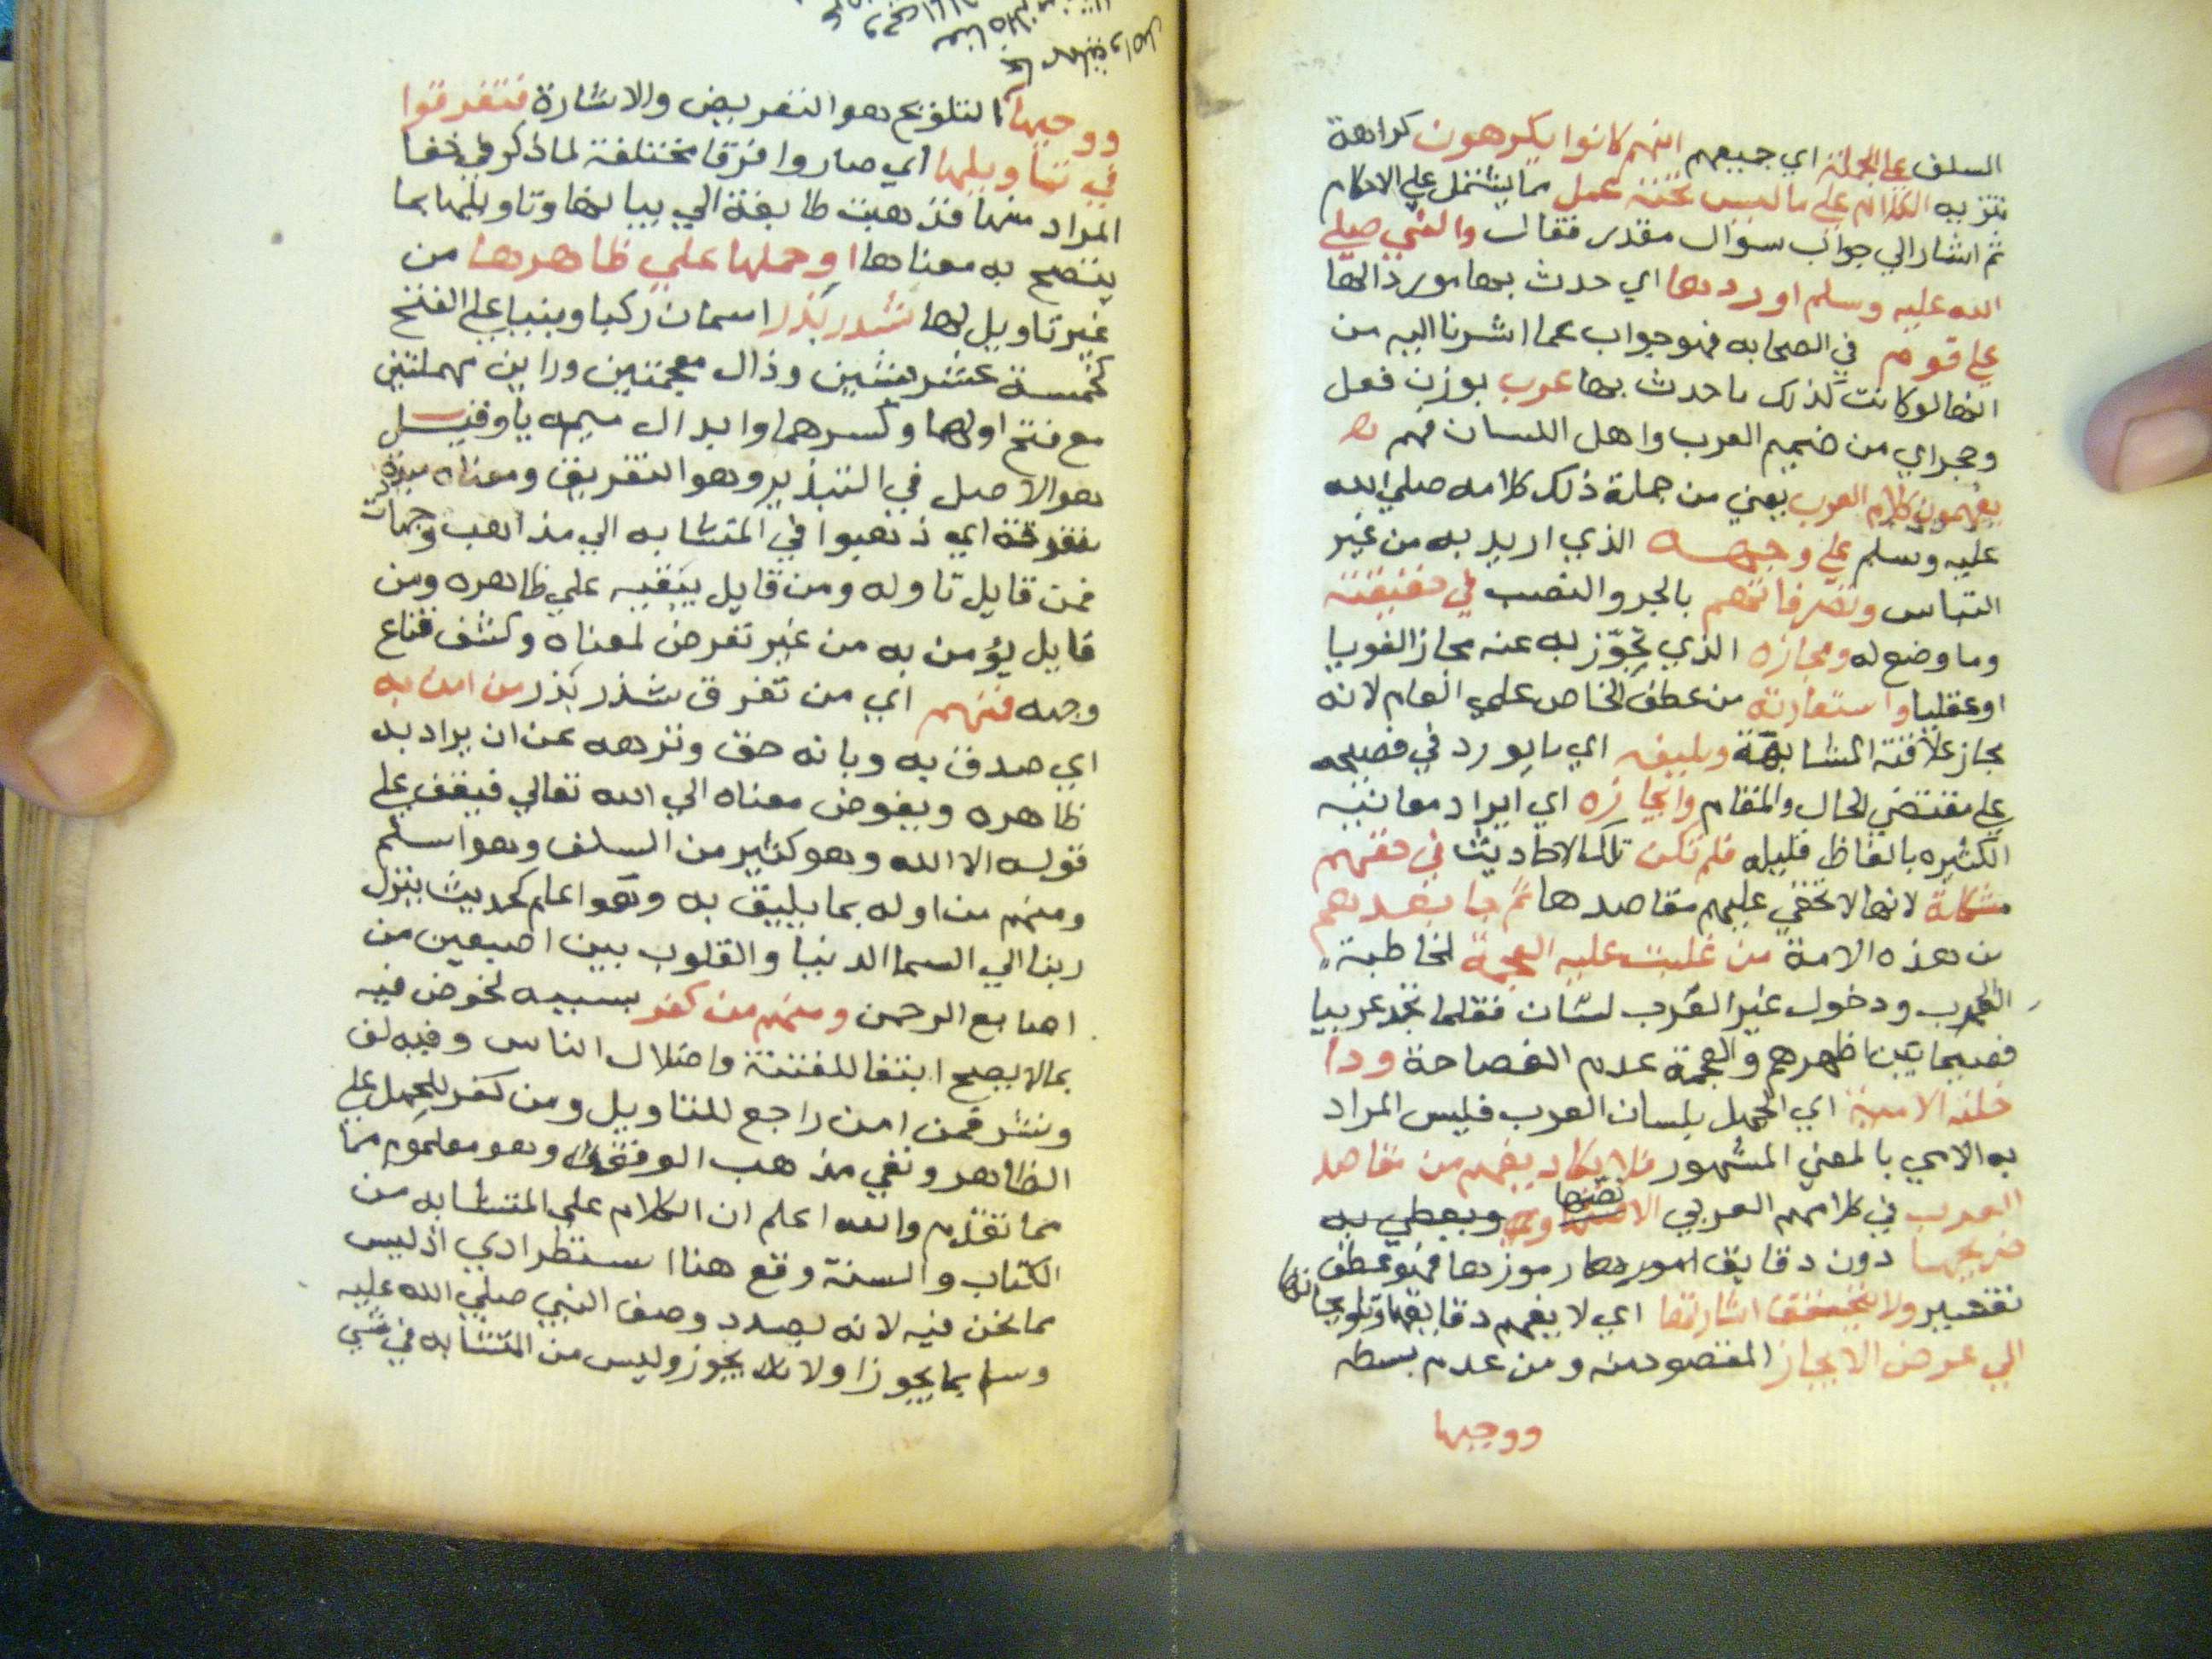 السلف على الجملة اي جميعهم انهم كانوا يكرهون كراهة
تنزيه الكلام علي ما ليس تحته عمل مما يشتمل علي الاحكام
ثم اشار الي جواب سوال مقدر فقال والنبي صلي
الله عليه وسلم اوردها اي حدث بها موردا لها
علي قوم في الصحابه فهو جواب عما اشرنا اليه من
انها لو كانت كذلك ما حدث بها عرب بوزن فعل
وحجر اي من صميم العرب واهل اللسان فهم
يفهمون كلام العرب يعني من جملة ذلك كلامه صلي الله
عليه وسلم علي وجهه الذي اريد به من غير
التباس وتصرفاتهم بالجر والنصب في حقيقته
وما وضع له ومجازه الذي تجوّز به عنه مجازا لغويا
او عقليا واستعارته من عطف الخاص علي العام لانه
مجاز علاقته المشابهة وبليغه اي ما يورد في فصيحه
علي مقتضي الحال والمقام وايجازه اي ايراد معانيه
الكثيره بالفاظ قليله فلم تكن تلك الاحاديث في حقهم
مشكلة لانها لا تخفي عليهم مقاصدها ثم جا بعدهم
من هذه الامة من غلبت عليه العجمة لمخاطبة
العرب ودخول غير العرب لسان فقلما تجد عربيا
فصيحا بين اظهرهم والعجمة عدم الفصاحة ودا
خلته الامية اي الجهل بلسان العرب فليس المراد
به الامي بالمعني المشهور فلا يكاد يفهم من مقاصد
العرب في كلامهم العربي الا نصها
صريحها دون دقايق امورها رموزها فهو عطف
تفسير ولا يتحقق اشارتها اي لا يفهم دقايقها وتلويحاتها
الي غرض الايجاز المقصود منه ومن عدم بسطه
ووحيها
ووحيها التلويح هو التعريض والاشارة فتفرقوا
في تاويلها اي صاروا فرقا مختلفة لما ذكر في خفا
المراد منها فذهبت طايفة الي بيانها وتاويلها بما
يتضح به معناها او حملها علي ظاهرها من
غير تاويل لها شذر بذر اسمان ركبا وبنيا علي الفتح
كخمسة عشر بشين وذال معجمتين وراين مهملتين
مع فتح اولهما وكسرهما وابدال ميمه يا وقيل
هو الاصل في التبذير وهو التفريق ومعناه
متفرقة اي ذهبوا في المتشابه الي مذاهب وجهات
فمن قايل تاوله ومن قايل يبقيه علي ظاهره ومن
قايل يؤمن به من غير تعرض لمعناه وكشف قناع
وجهه فمنهم اي من تفرق شذر بذر من امن به
اي صدق به وبانه حق ونزهه عن ان يراد به
ظاهره ويفوض معناه الي الله تعالي فيقف علي
قوله الا الله وهو كثير من السلف وهو اسلم
ومنهم من اوله بما يليق به وهو اعلم كحديث ينزل
ربنا الي السما الدنيا والقلوب بين اصبعين من
اصابع الرحمن ومنهم من كفر بسببه لخوض فيه
بما لا يصح ابتغا للفتنة واضلال الناس وفيه لف
ونشر فمن امن راجع للتاويل ومن كفر للحمل علي
الظاهر ونفي مذهب الوقف وهو معلوم مما
مما تقدم والله اعلم ان الكلام علي المتشابه من
الكتاب والسنة وقع هنا استطرادي اذ ليس
مما نحن فيه لانه بصدد وصف النبي صلي الله عليه
وسلم بما يجوز اولا يجوز وليس من المتشابه في شي